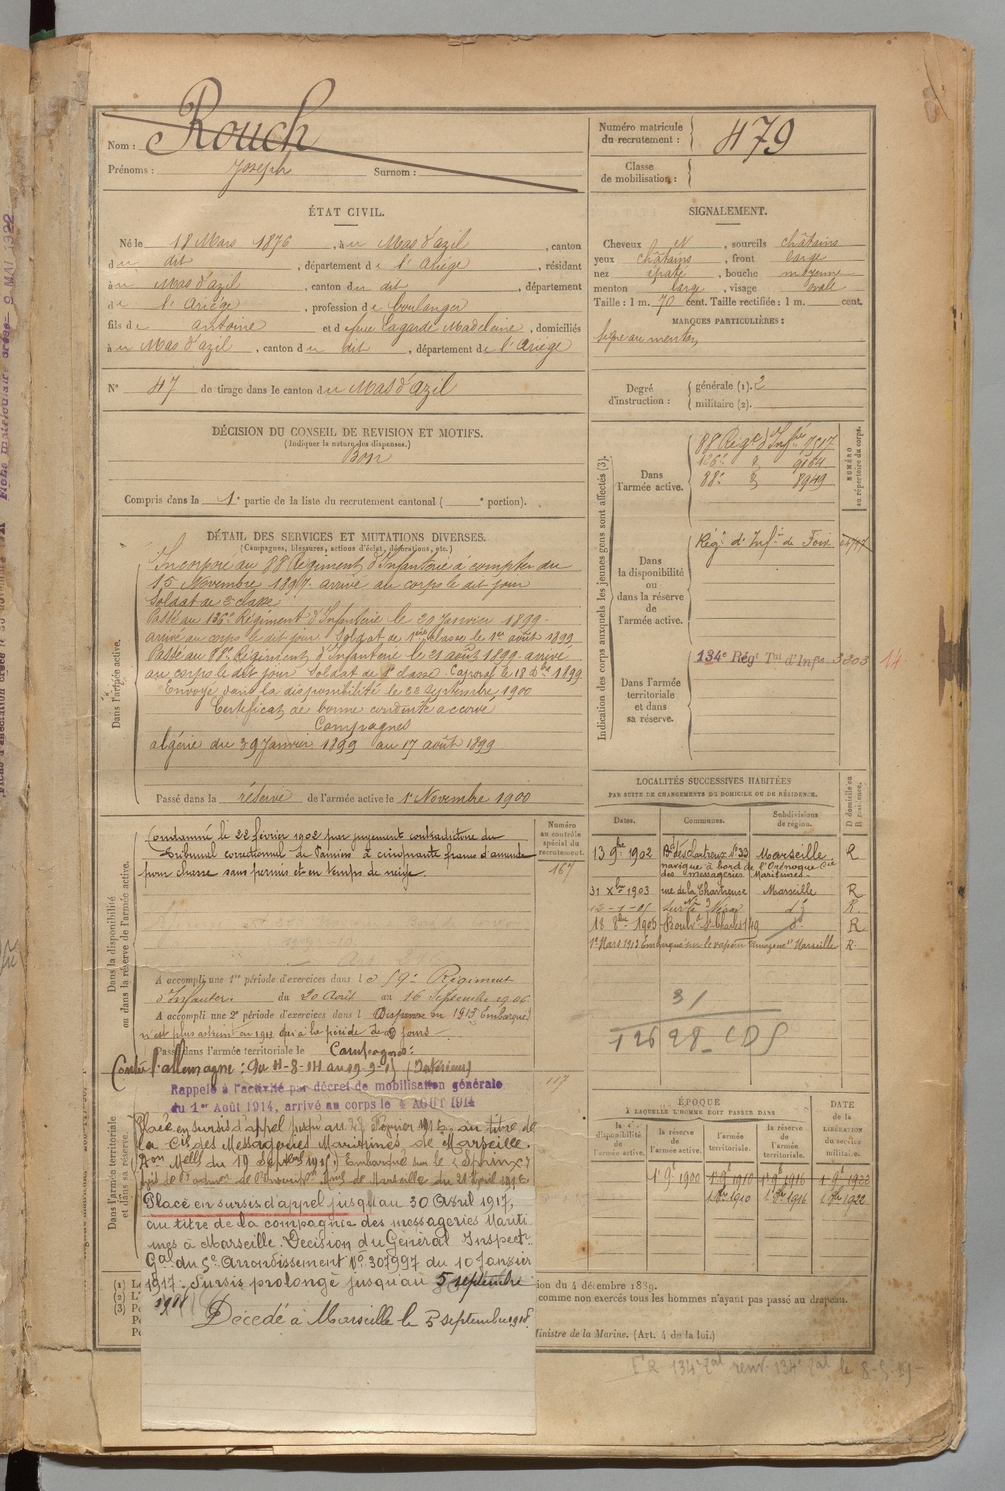 Nom : Rouch
Prénoms : Joseph Surnom :
Numéro matricule du recrutement : 479
Classe de mobilisation :
ÉTAT CIVIL.
Né le 18 Mars 1876, à u Mas d'azil, canton
d u dit, département d e l'Ariège, résidant
à u Mas d'azil, canton d u dit, département
d e l'Ariège, profession d e boulanger
fils d e antoine et d e feue Lagarde Madeleine, domiciliés
à u Mas d'azil, canton d u dit, département d e l'Ariège
N° 47 de tirage dans le canton d u Mas d'azil
SIGNALEMENT.
Cheveux N, sourcils châtains
yeux châtains, front large
nez épaté, bouche moyenne
menton large, visage ovale
Taille : 1 m. 70 cent. Taille rectifiée : 1 m. cent.
MARQUES PARTICULIÈRES :
au menton
Degré d'instruction : générale (1). 2
militaire (2).
DÉCISION DU CONSEIL DE REVISION ET MOTIFS.
(Indiquer la nature des dispenses.)
Bon
Compris dans la 1e partie de la liste du recrutement cantonal ( e portion).
DÉTAIL DES SERVICES ET MUTATIONS DIVERSES.
(Campagnes, blessures, actions d'éclat, décorations, etc.)
Dans l'armée active.
Incorporé au 88e Régiment d'Infanterie à compter du
15 Novembre 1897. arrivé au corps le dit jour
Soldat de 2e classe
Passé au 126e Régiment d'Infanterie le 20 Janvier 1899.
arrivé au corps le dit jour Soldat de 1ère classe le 1er août 1899
Passé au 88e Régiment d'Infanterie le 21 août 1899. arrivé
au corps le dit jour Soldat de classe. Caporal le 18 1899
Envoyé dans la disponibilité le 22 Septembre 1900
Certificat de bonne conduite accordé
Campagnes
algérie du Janvier 1899 au 17 août 1899
Passé dans la réserve de l'armée active le 1er Novembre 1900
Indication des corps auxquels les jeunes gens sont affectés (3).
NUMÉRO au répertoire du corps.
Dans l'armée active.
88e Régt d'Infrie 7517
126e 9264
88e 8949
Dans la disponibilité ou dans la réserve de l'armée active.
Régt d'Infie de Foix
Dans l'armée territoriale et dans sa réserve.
134e Régt Tal d'Infie 3303 14
LOCALITÉS SUCCESSIVES HABITÉES
PAR SUITE DE CHANGEMENTS DE DOMICILE OU DE RÉSIDENCE.
Dates. Communes. Subdivisions de région. D domicile ou R résidence.
13 9bre 1902 Bd des Chartreux N° 33 Marseille R
navigue à bord de l'Orénoque Cie
des messageries Maritimes.
31 Xbre 1903 rue de la Chartreuse Marseille R
R.
18 8bre 1906 Boulvd St Charles 149 do R
1er Mars 1912 Embarqué sur le vapeur Marseille R.
31
Numéro au contrôle spécial du recrutement.
167
Dans la disponibilité ou dans la réserve de l'armée active.
Condamné le 22 février 1902 par jugement contradictoire du
Tribunal correctionnel de Pamiers à cinquante francs d'amende
pour chasse sans permis et en temps de neige.
A accompli une 1re période d'exercices dans l e 59e Régiment
d'Infanterie du 20 Août au 16 Septembre 1906
A accompli une 2e période d'exercices dans l Dispensé en 1913 Embarqué
Passé dans l'armée territoriale le Campagnes:
Contre l'allemagne: du 4-8-14 au 19-9-15 (Intérieur)
117
Rappelé à l'activité par décret de mobilisation générale
du 1er Août 1914, arrivé au corps le 4 AOUT 1914
Dans l'armée territoriale et dans sa réserve.
Placé en sursis d'appel jusqu'au Février 1916 au titre de
la Cie des Messageries Maritimes de Marseille.
du 19 Septbre 1915 Embarqué sur le "Sphinx"
Placé en sursis d'appel jusqu'au 30 Avril 1917,
au titre de la compagnie des messageries Mariti
mes à Marseille. Décision du Général Inspectr
Gal du 5e Arrondissement N° 307997 du 10 Janvier
1917. Sursis prolongé jusqu'au 5 septembre
1918
Décédé à Marseille le 5 septembre 1918.
ÉPOQUE
À LAQUELLE L'HOMME DOIT PASSER DANS
la disponibilité de l'armée active. la réserve de l'armée active. l'armée territoriale. la réserve de l'armée territoriale.
DATE de la LIBÉRATION du service militaire.
1er 9bre 1900 1er 9bre 1910 1er 9bre 1916 1er 9bre 1922
1er 8bre 1910 1er 8bre 1916 1er 8bre 1922
ion du 4 décembre 1889.
comme non exercés tous les hommes n'ayant pas passé au drapeau.
Ministre de la Marine. (Art. 4 de la loi.)